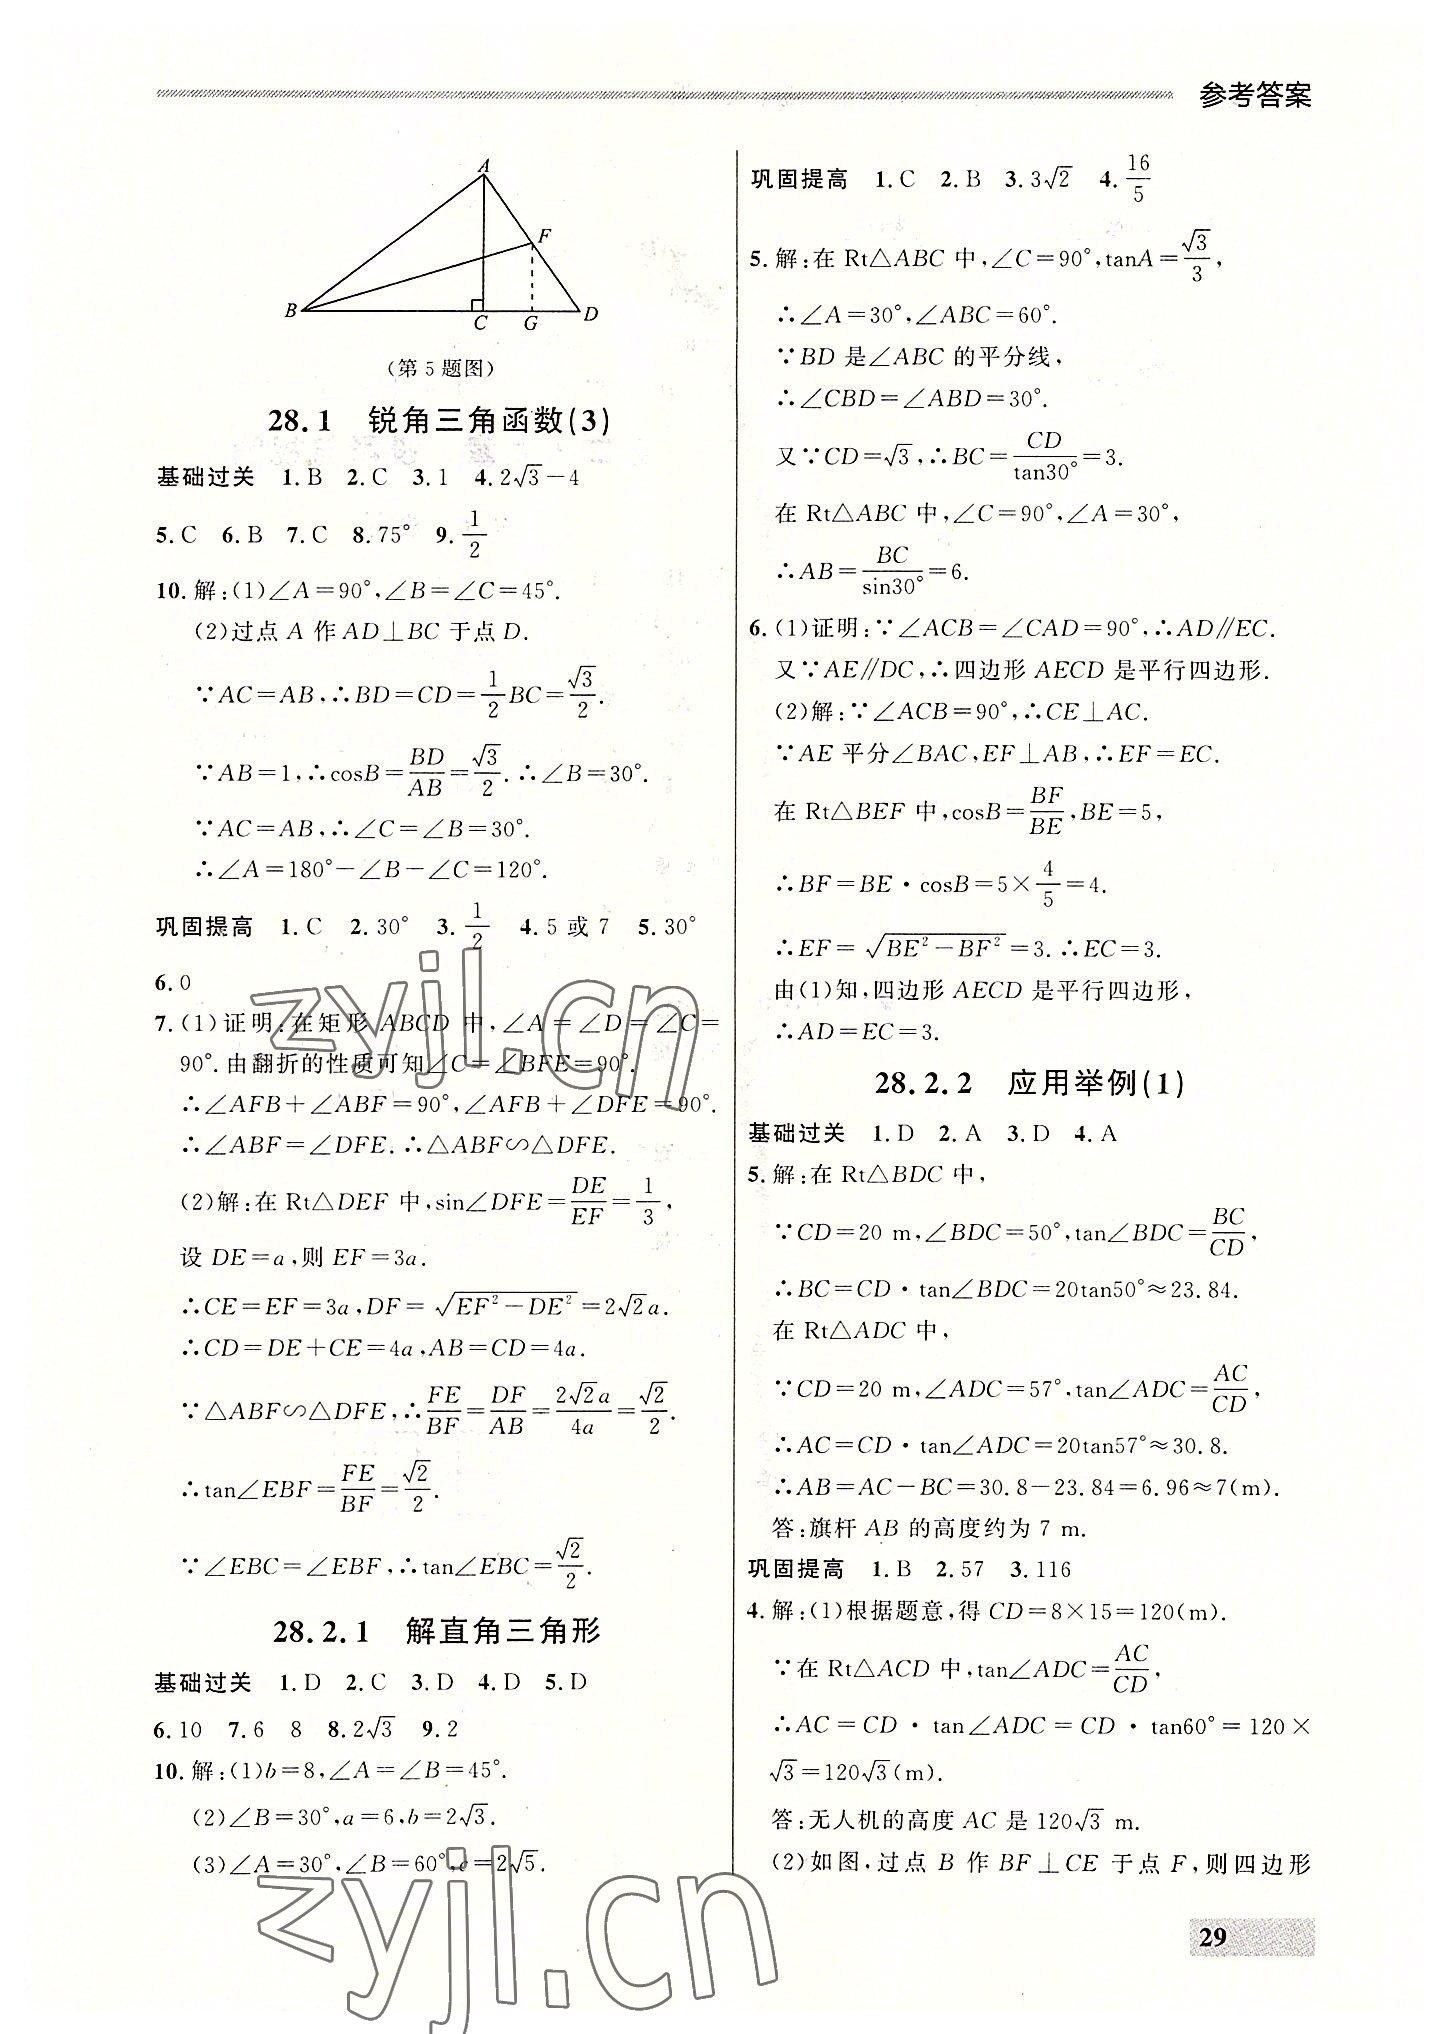 参考答案
A
F
B
C
G
D
(第5题图)
28.1 锐角三角函数(3)
基础过关 1.B 2.C 3.1 4.2√3-4
5.C 6.B 7.C 8.75° 9.1/2
10.解:(1)∠A=90°,∠B=∠C=45°.
(2)过点A作AD⊥BC于点D.
∵AC=AB,∴BD=CD=1/2BC=√3/2.
∵AB=1,∴cosB=BD/AB=√3/2.∴∠B=30°.
∵AC=AB,∴∠C=∠B=30°.
∴∠A=180°-∠B-∠C=120°.
巩固提高 1.C 2.30° 3.1/2 4.5或7 5.30°
6.0
7.(1)证明:在矩形ABCD中,∠A=∠D=∠C=
90°.由翻折的性质可知∠C=∠BFE=90°.
∴∠AFB+∠ABF=90°,∠AFB+∠DFE=90°.
∴∠ABF=∠DFE.∴△ABF∽△DFE.
(2)解:在Rt△DEF中,sin∠DFE=DE/EF=1/3,
设DE=a,则EF=3a.
∴CE=EF=3a,DF=√(EF²-DE²)=2√2a.
∴CD=DE+CE=4a,AB=CD=4a.
∵△ABF∽△DFE,∴FE/BF=DF/AB=2√2a/4a=√2/2.
∴tan∠EBF=FE/BF=√2/2.
∵∠EBC=∠EBF,∴tan∠EBC=√2/2.
28.2.1 解直角三角形
基础过关 1.D 2.C 3.D 4.D 5.D
6.10 7.6 8 8.2√3 9.2
10.解:(1)b=8,∠A=∠B=45°.
(2)∠B=30°,a=6,b=2√3.
(3)∠A=30°,∠B=60°,c=2√5.
巩固提高 1.C 2.B 3.3√2 4.16/5
5.解:在Rt△ABC中,∠C=90°,tanA=√3/3,
∴∠A=30°,∠ABC=60°.
∵BD是∠ABC的平分线,
∴∠CBD=∠ABD=30°.
又∵CD=√3,∴BC=CD/tan30°=3.
在Rt△ABC中,∠C=90°,∠A=30°,
∴AB=BC/sin30°=6.
6.(1)证明:∵∠ACB=∠CAD=90°,∴AD∥EC.
又∵AE∥DC,∴四边形AECD是平行四边形.
(2)解:∵∠ACB=90°,∴CE⊥AC.
∵AE平分∠BAC,EF⊥AB,∴EF=EC.
在Rt△BEF中,cosB=BF/BE,BE=5,
∴BF=BE·cosB=5×4/5=4.
∴EF=√(BE²-BF²)=3.∴EC=3.
由(1)知,四边形AECD是平行四边形,
∴AD=EC=3.
28.2.2 应用举例(1)
基础过关 1.D 2.A 3.D 4.A
5.解:在Rt△BDC中,
∵CD=20 m,∠BDC=50°,tan∠BDC=BC/CD,
∴BC=CD·tan∠BDC=20tan50°≈23.84.
在Rt△ADC中,
∵CD=20 m,∠ADC=57°,tan∠ADC=AC/CD,
∴AC=CD·tan∠ADC=20tan57°≈30.8.
∴AB=AC-BC=30.8-23.84=6.96≈7(m).
答:旗杆AB的高度约为7 m.
巩固提高 1.B 2.57 3.116
4.解:(1)根据题意,得CD=8×15=120(m).
∵在Rt△ACD中,tan∠ADC=AC/CD,
∴AC=CD·tan∠ADC=CD·tan60°=120×
√3=120√3(m).
答:无人机的高度AC是120√3 m.
(2)如图,过点B作BF⊥CE于点F,则四边形
29
zyjl.cn
zyjl.cn